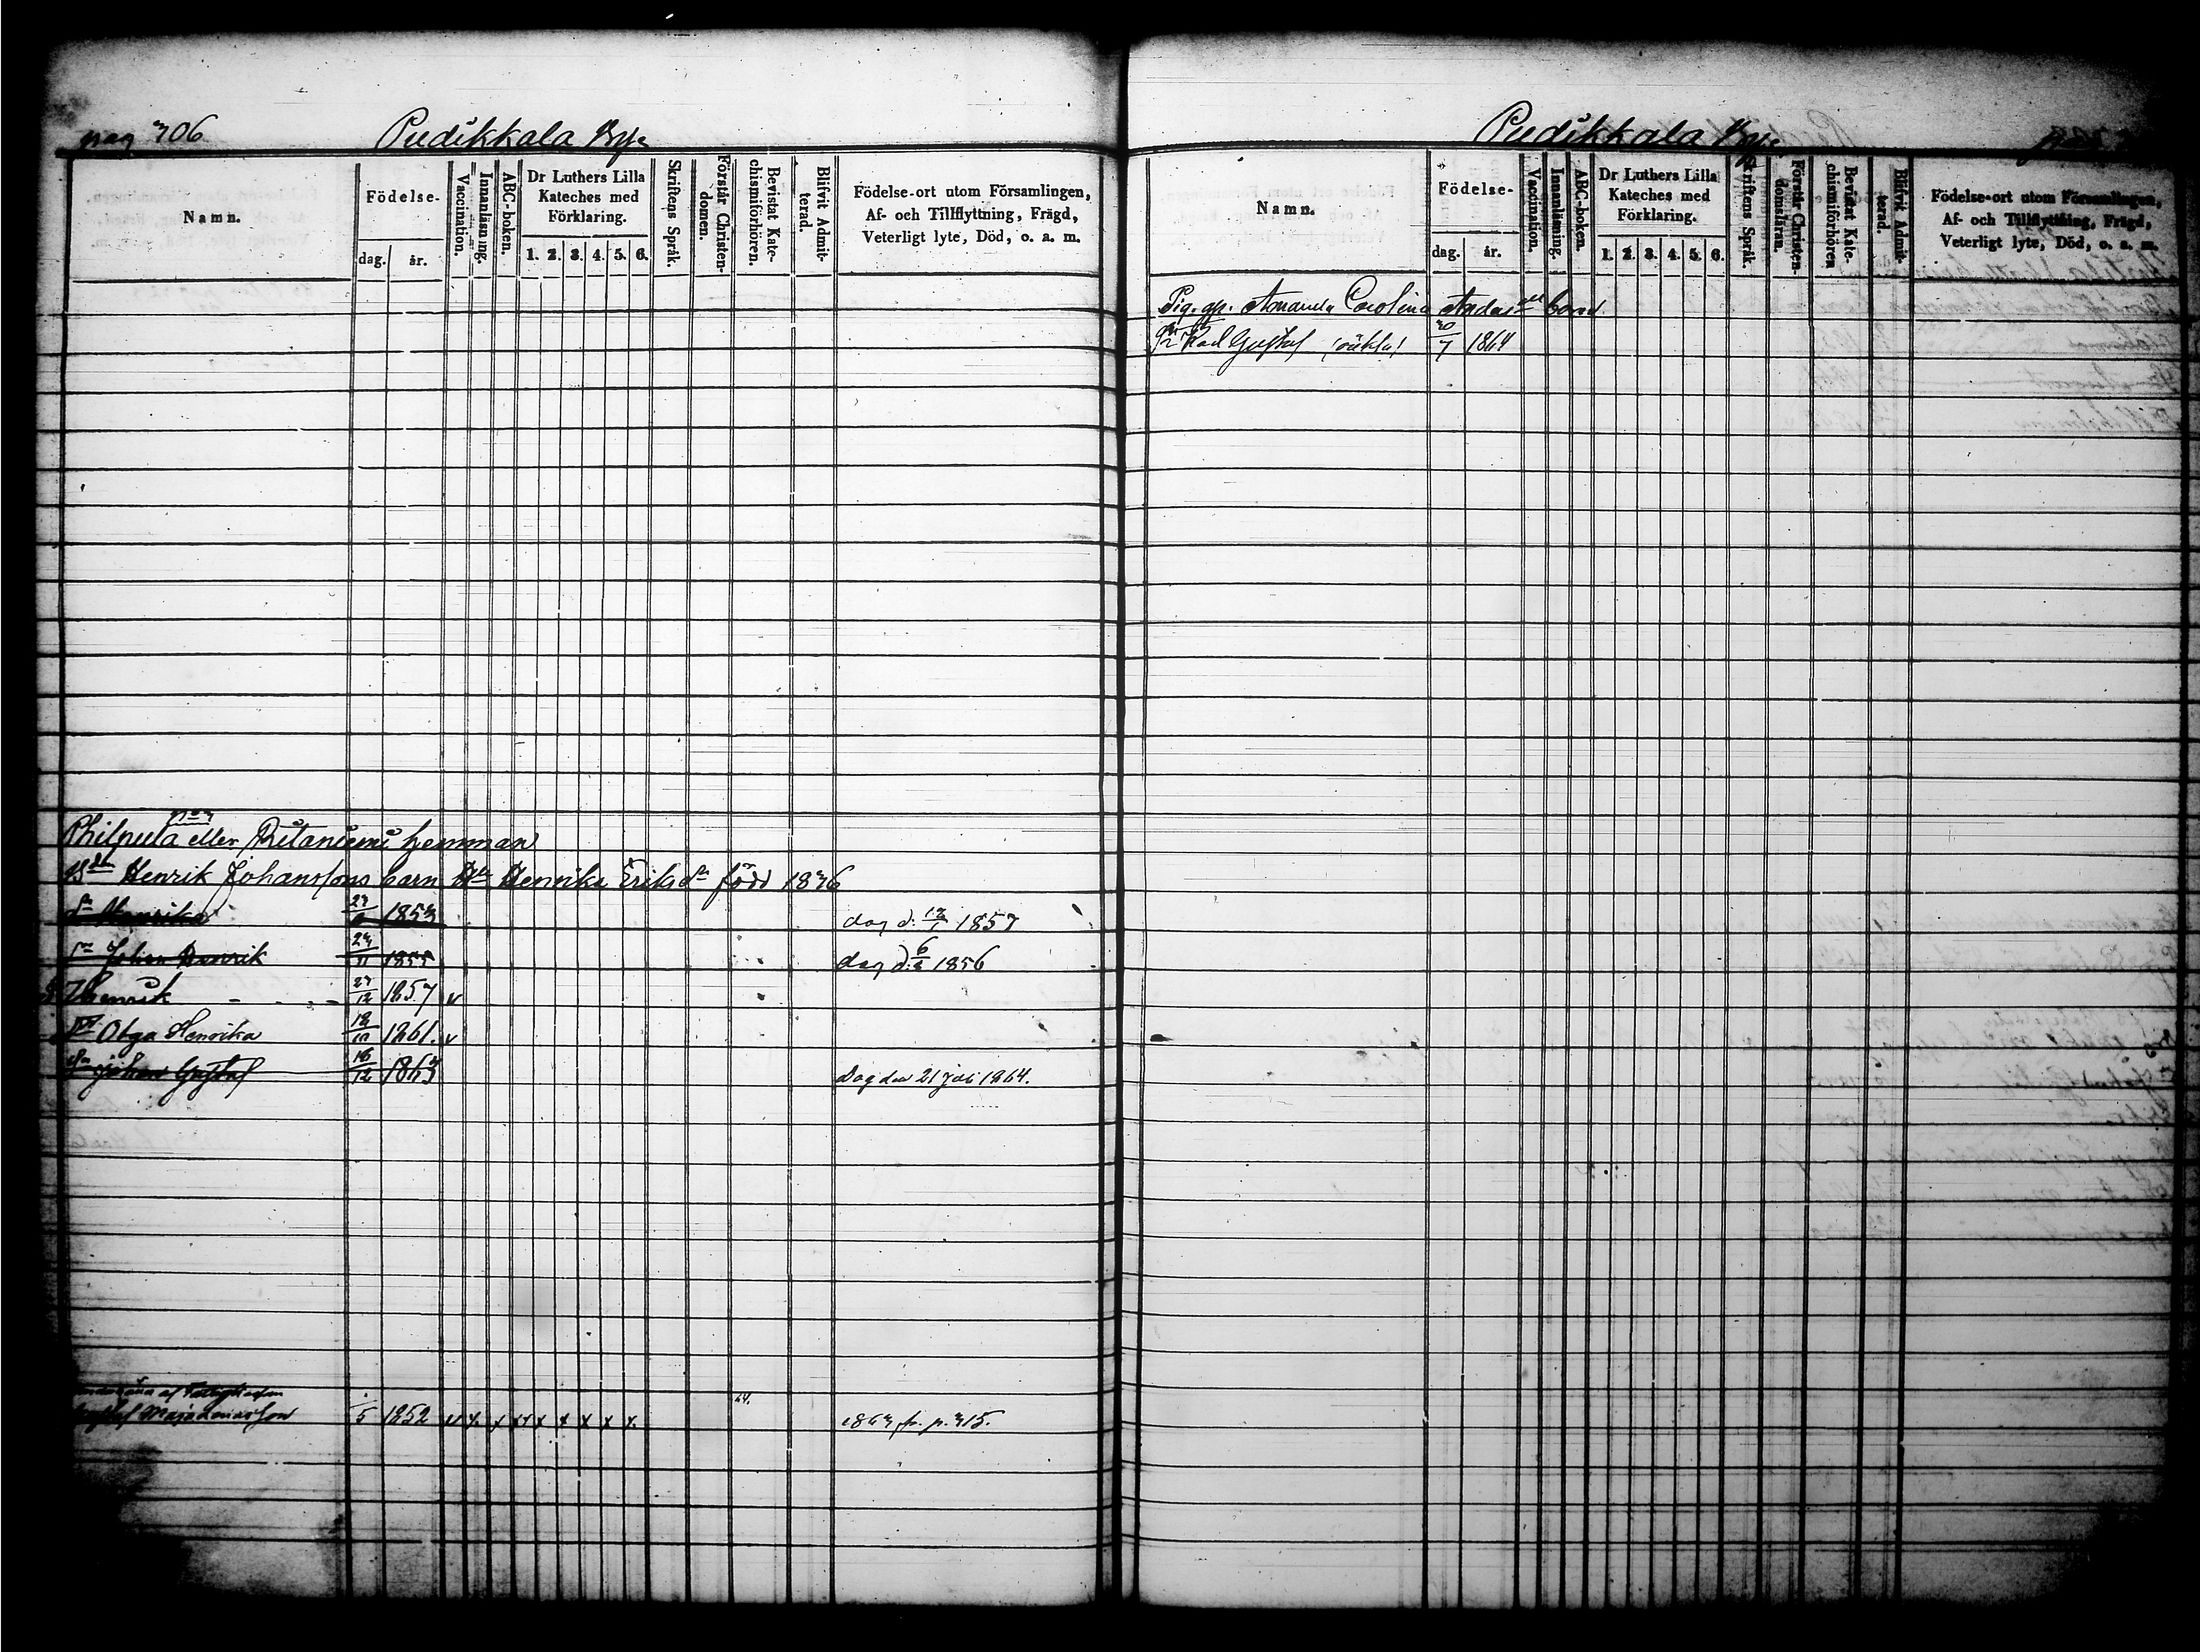 pag 306 Pudikkala By
Namn.
Födelse-
dag. år.
Vaccination.
Innanläsning.
ABC-boken.
Dr Luthers Lilla
Kateches med
Förklaring.
1. 2. 3. 4. 5. 6.
Skriftens Språk.
Förstår Christen-
domen.
Bevistat Kate-
chismiförhören.
Blifvit Admit-
terad.
Födelse-ort utom Församlingen,
Af- och Tillflyttning, Frägd,
Veterligt lyte, Död, o. a. m.
Philpula eller Ritaniemi hemman
Bdn Henrik Johanssons barn Dr Henrika Eriksdr född 1836
dr Henrika 1853 dog d. 1857
sn Johan Henrik 23/11 1855 dog d. 1856
Henrik 27/12 1857 v
Olga Henrika 1861. v
sn Johan Gustaf 16/12 1863 Dog den 21 juli 1864.
Gustaf /5 1852 x x x x x x x 64. 1863 fr. p. 315.
Pudikkala By
Namn.
Födelse-
dag. år.
Vaccination.
Innanläsning.
ABC-boken.
Dr Luthers Lilla
Kateches med
Förklaring.
1. 2. 3. 4. 5. 6.
Skriftens Språk.
Förstår Christen-
domsläran.
Bevistat Kate-
chismiförhören
Blifvit Admit-
terad.
Födelse-ort utom Församlingen,
Af- och Tillflyttning, Frägd,
Veterligt lyte, Död, o. a. m.
Pig. gp. Amanda Carolina barn
Karl Gustaf (oäkta) 30/7 1864